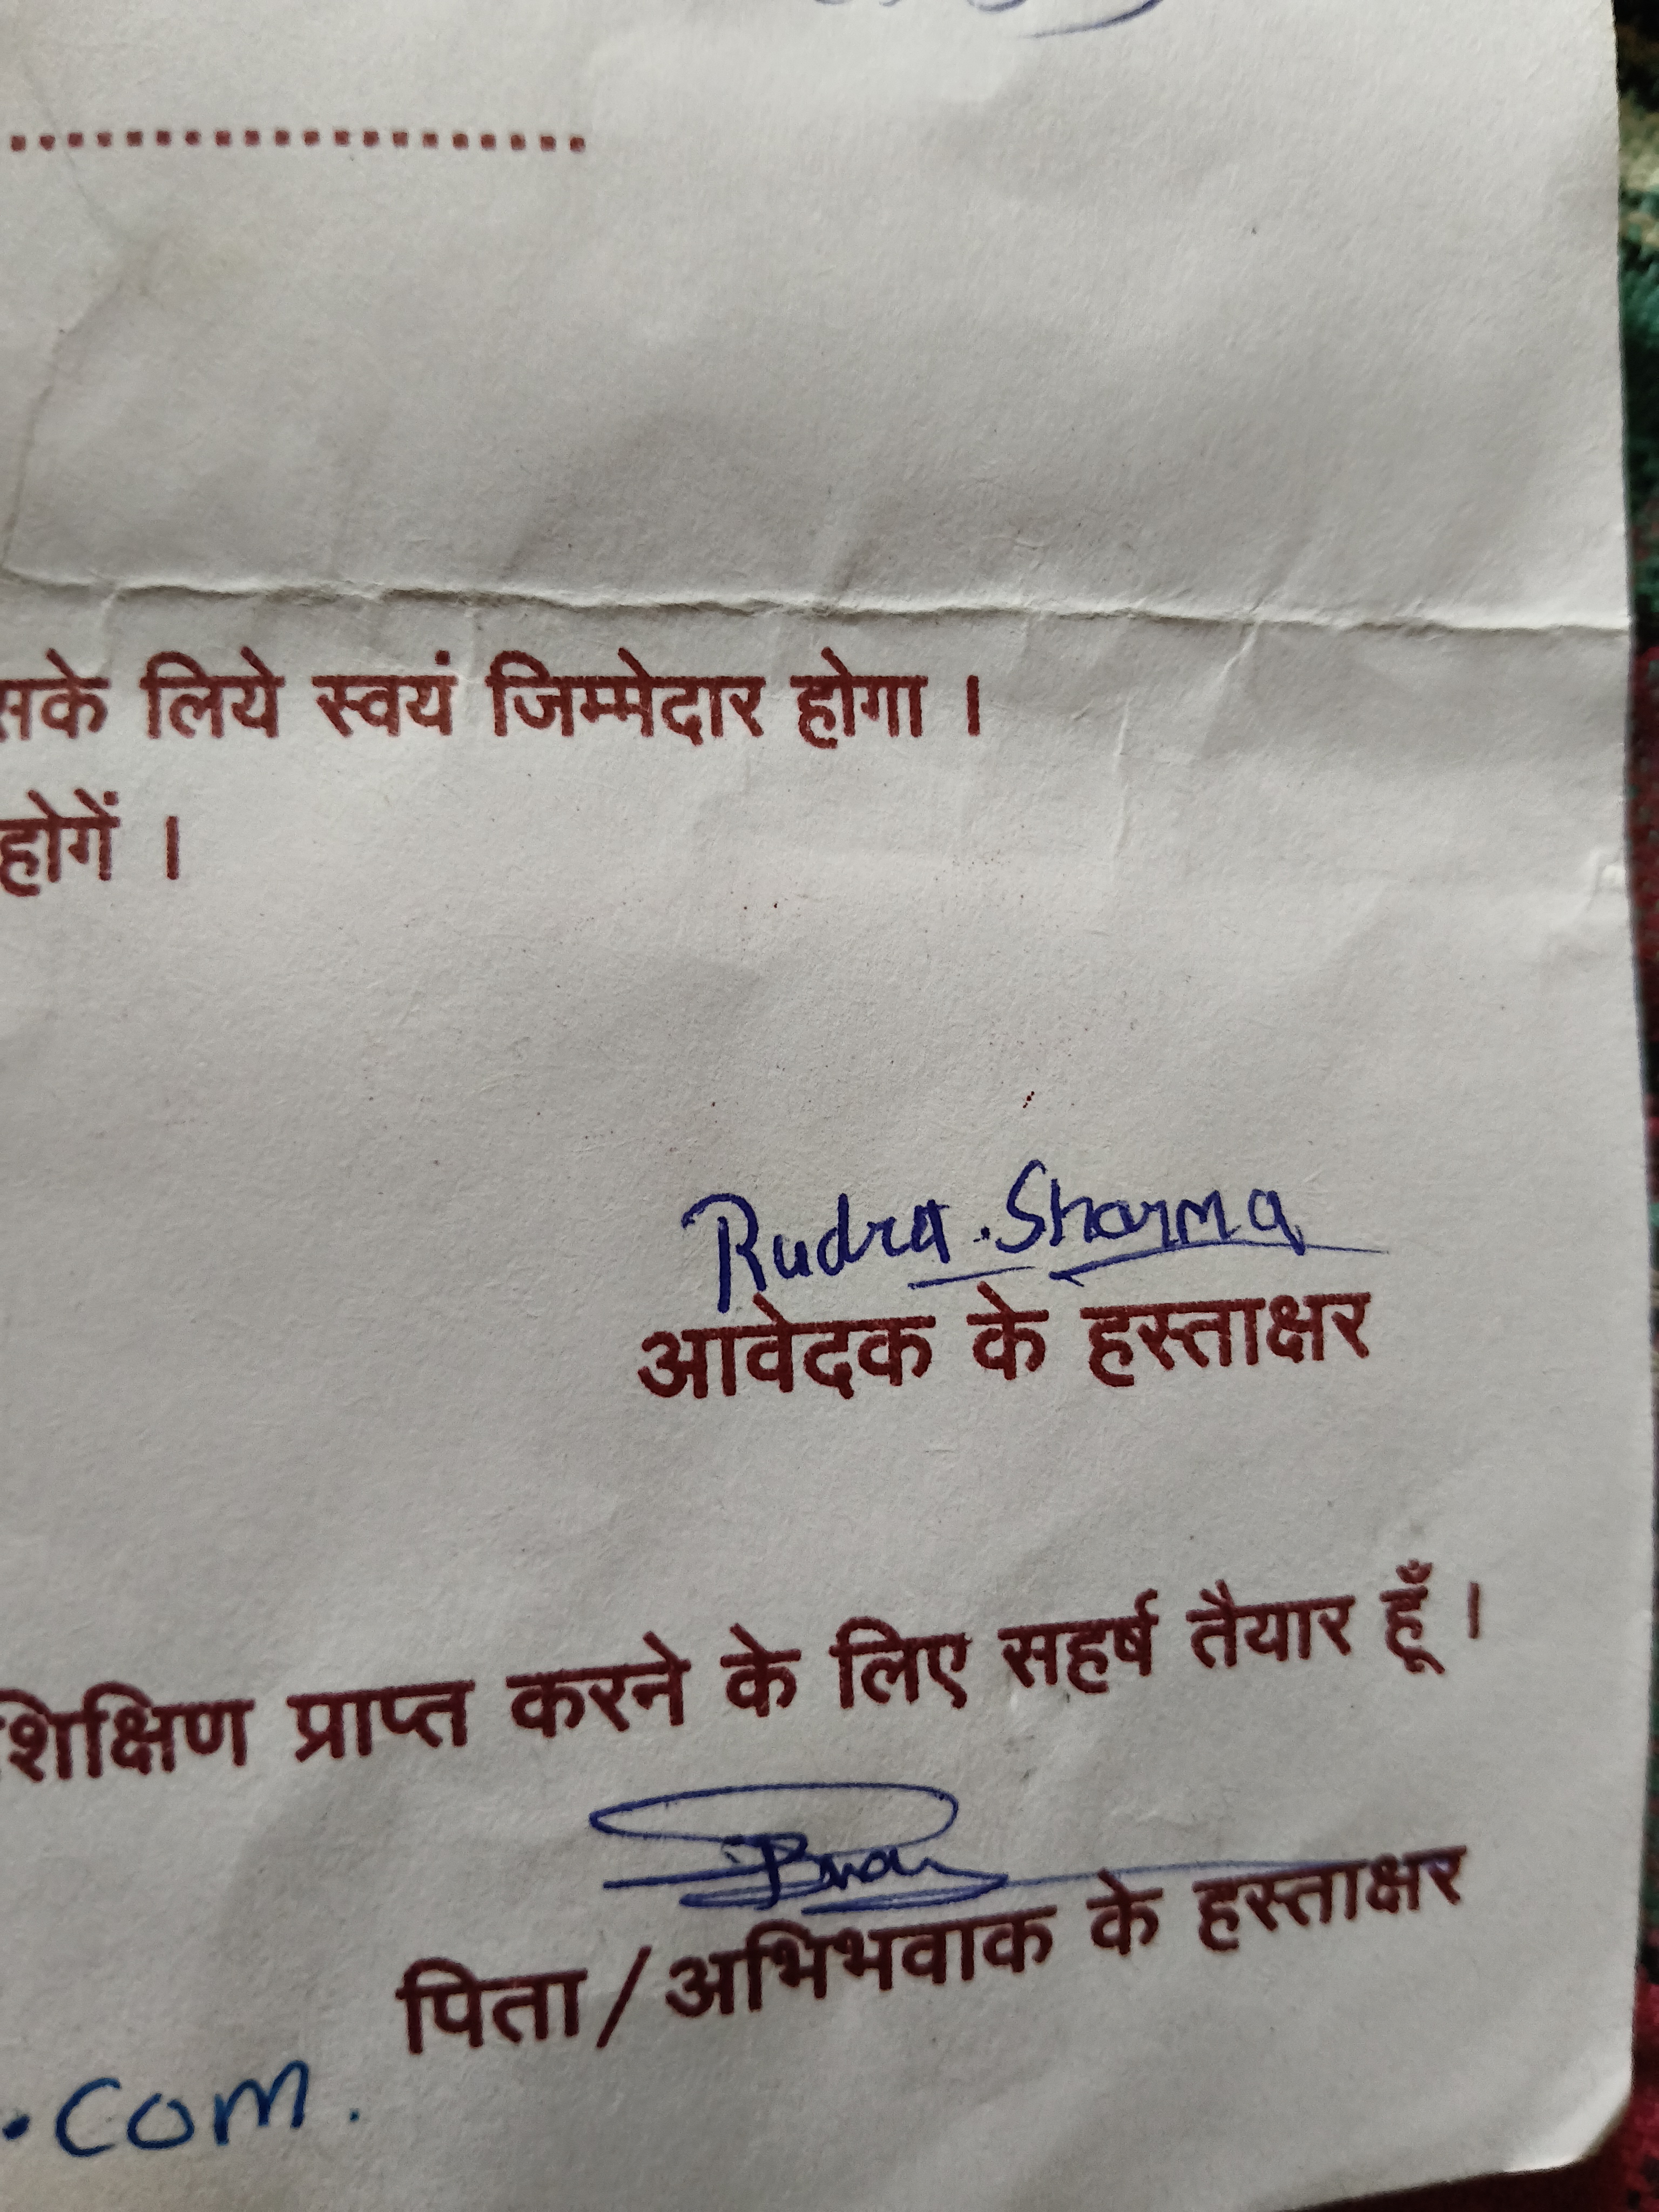 ....................
सके लिये स्वयं जिम्मेदार होगा ।
होगें ।
Rudra . Sharma
आवेदक के हस्ताक्षर
शिक्षिण प्राप्त करने के लिए सहर्ष तैयार हूँ ।
पिता/अभिभवाक के हस्ताक्षर
.com.